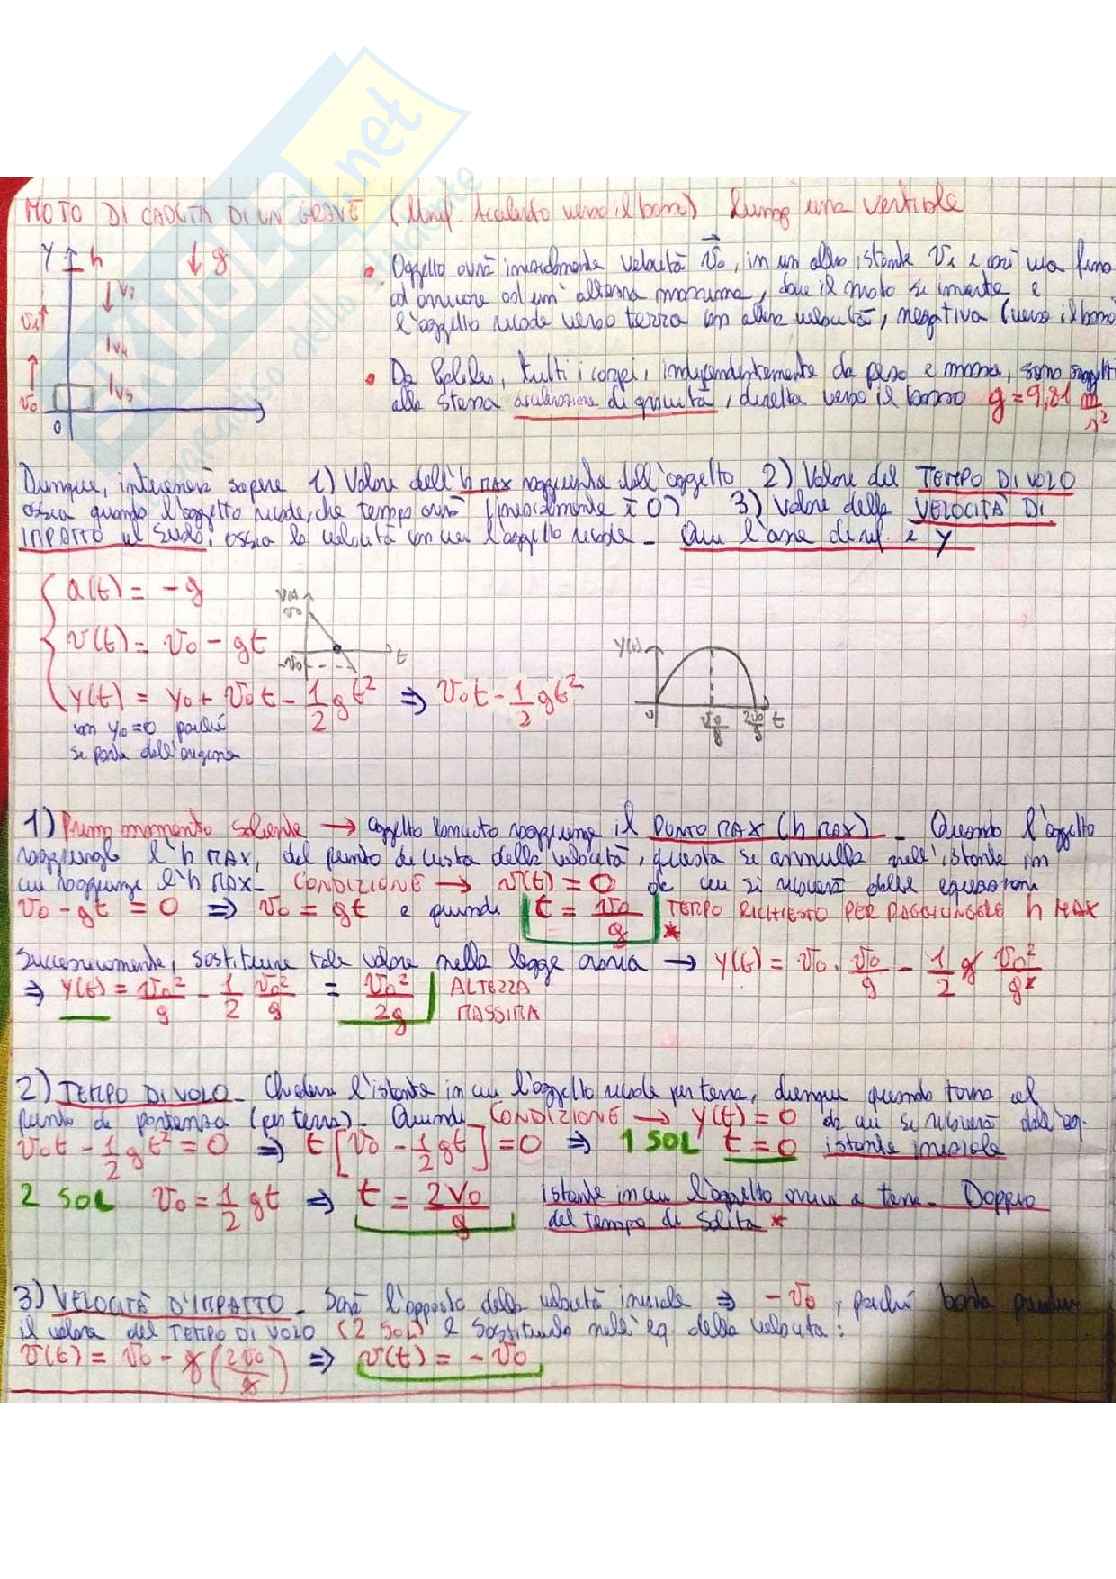 MOTO DI CADUTA DI UN GRAVE (Unif. Accelerato verso il basso) lungo una verticale
Y h g
v2
v1
v4
v0 v5
0
• Oggetto avrà inizialmente velocità v0, in un altro istante v1 e così via fino
ad arrivare ad un' altezza massima, dove il moto si inverte e
l'oggetto ricade verso terra con altre velocità, negativa (verso il basso
• Da Galileo, tutti i corpi, indipendentemente da peso e massa, sono soggetti
alla stessa accelerazione di gravità, diretta verso il basso g = 9,81 m/s²
Dunque, interesserà sapere 1) Valore dell'h MAX raggiunta dall'oggetto 2) Valore del TEMPO DI VOLO
ossia quando l'oggetto ricade, che tempo avrà (inizialmente è 0) 3) Valore della VELOCITÀ DI
IMPATTO al suolo, ossia la velocità con cui l'oggetto ricade - Qui l'asse di rif. è y
a(t) = -g
v(t) = v0 - gt
v(t) v0 -v0 t
y(t) = y0 + v0t - 1/2 gt² ⇒ v0t - 1/2 gt²
con y0=0 perché
si parte dall'origine
y(t) 0 v0/g 2v0/g t
1) Primo momento saliente → oggetto lanciato raggiunge il PUNTO MAX (h MAX) - Quando l'oggetto
raggiunge l'h MAX, dal punto di vista della velocità, questa si annulla nell'istante in
cui raggiunge l'h MAX - CONDIZIONE → v(t) = 0 da cui si ricaverà dalle equazioni
v0 - gt = 0 ⇒ v0 = gt e quindi t = v0/g TEMPO RICHIESTO PER RAGGIUNGERE h MAX *
Successivamente, sostituire tale valore nella legge oraria → y(t) = v0 · v0/g - 1/2 g v0²/g²
⇒ y(t) = v0²/g - 1/2 v0²/g = v0²/2g ALTEZZA MASSIMA
2) TEMPO DI VOLO - Chiedere l'istante in cui l'oggetto ricade per terra, dunque quando torna al
punto di partenza (per terra) - Quindi CONDIZIONE → y(t) = 0 da cui si ricaverà dall'eq.
v0t - 1/2 gt² = 0 ⇒ t[v0 - 1/2 gt] = 0 ⇒ 1 SOL t = 0 istante iniziale
2 SOL v0 = 1/2 gt ⇒ t = 2v0/g istante in cui l'oggetto arriva a terra - Doppio
del tempo di salita *
3) VELOCITÀ D'IMPATTO - Sarà l'opposto della velocità iniziale ⇒ -v0, perché basta prendere
il valore del TEMPO DI VOLO (2 SOL) e sostituirlo nell'eq. della velocità:
v(t) = v0 - g(2v0/g) ⇒ v(t) = -v0